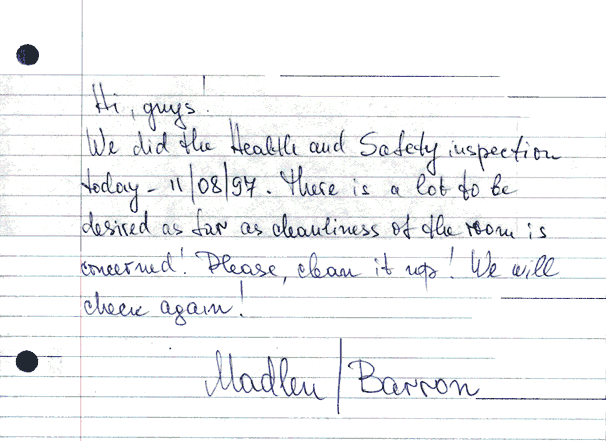 Hi, guys!
We did the Health and Safety inspection
today - 11/08/97. There is a lot to be
desired as far as cleanliness of the room is
concerned! Please, clean it up! We will
check again!
Madlen / Barron